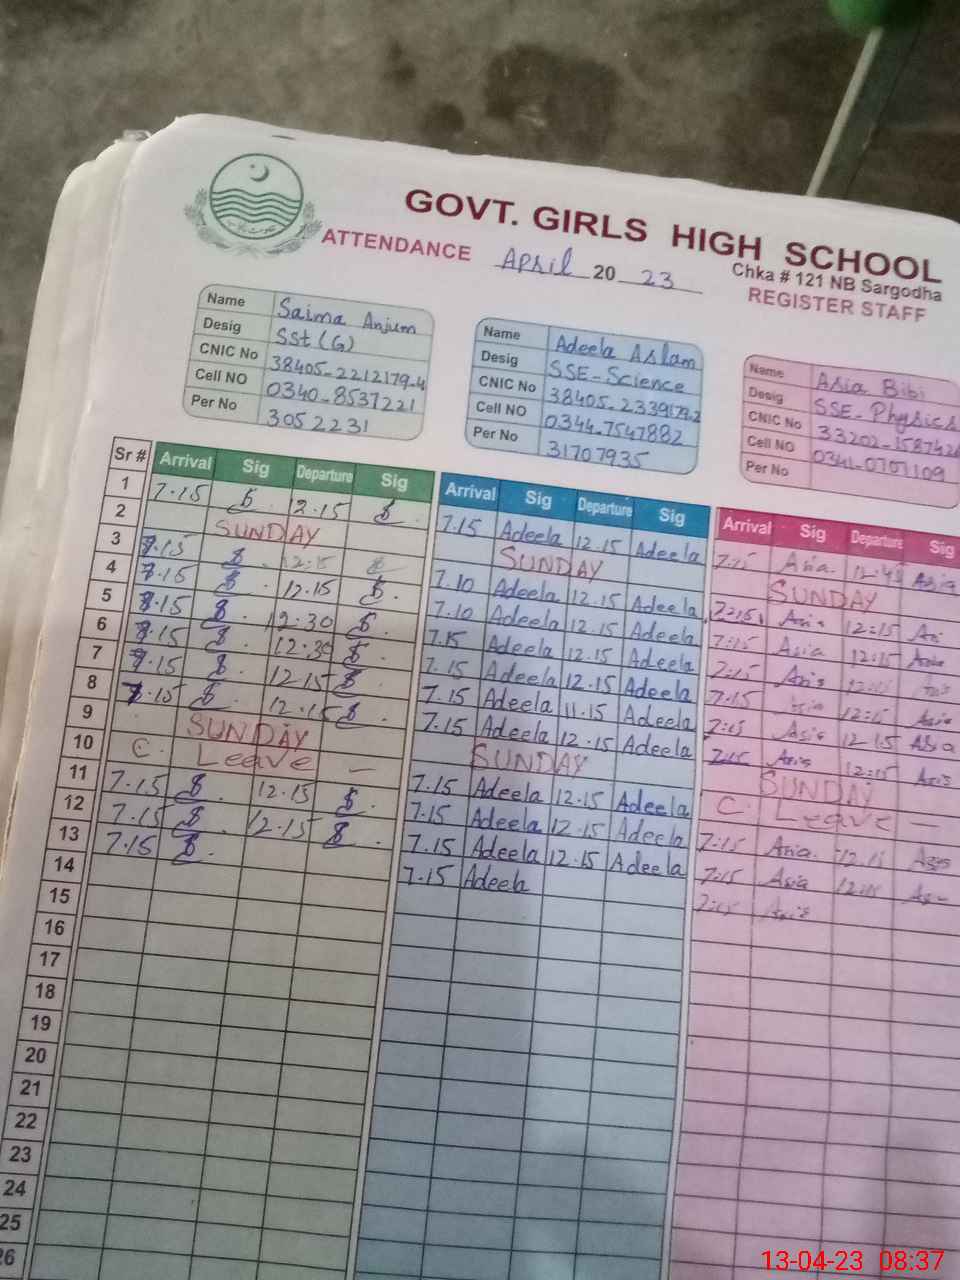 GOVT. GIRLS HIGH SCHOOL
ATTENDANCE April 2023 Chka # 121 NB Sargodha
REGISTER STAFF
Name Saima Anjum
Desig Sst (G)
CNIC No 38405-2212179-4
Cell NO 0340-8537221
Per No 3052231
Name Adeela Aslam
Desig SSE-Science
CNIC No 38405-2339179-2
Cell NO 0344-7547882
Per No 31707935
Name Asia Bibi
Desig SSE-Physics
CNIC No 33202-158742
Cell NO 0341-0707109
Per No
Sr # Arrival Sig Departure Sig Arrival Sig Departure Sig Arrival Sig Departure Sig
1 7.15 12.15 7.15 Adeela 12.15 Adeela 7:15 Asia 12:45 Asia
2 SUNDAY SUNDAY SUNDAY
3 7.15 12:15 7.10 Adeela 12.15 Adeela 7:15 Asia 12:15
4 7.15 12.15 7.10 Adeela 12.15 Adeela 7:15 Asia 12:15
5 8.15 12:30 7.15 Adeela 12.15 Adeela 7:15 Asia
6 8.15 12:30 7.15 Adeela 12.15 Adeela 7:15 Asia 12:15 Asia
7 7.15 12 15 7.15 Adeela 11.15 Adeela 7:15 Asia 12 15 Asia
8 7.15 12.15 7.15 Adeela 12.15 Adeela 7:15 Asia 12:15 Asia
9 SUNDAY SUNDAY SUNDAY
10 C. Leave — 7.15 Adeela 12.15 Adeela C. Leave —
11 7.15 12.15 7.15 Adeela 12.15 Adeela 7:15 Asia 12.15
12 7.15 12.15 7.15 Adeela 12.15 Adeela 7:15 Asia 12:15
13 7.15 7.15 Adeela 7:15 Asia
14
15
16
17
18
19
20
21
22
23
24
25
26
13-04-23 08:37